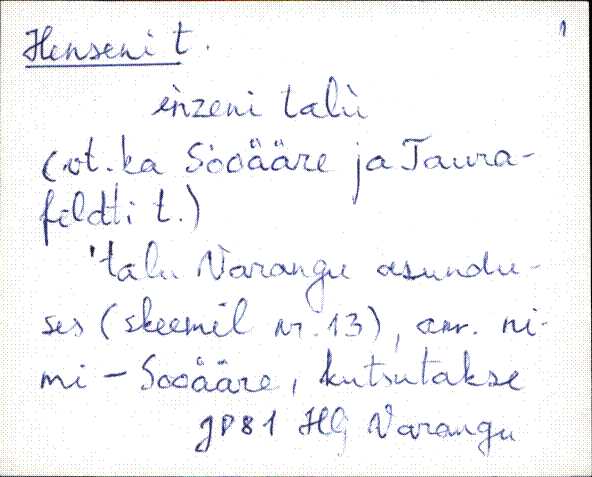 1
Henseni t.
ènzeni talù
(vt. ka Sooääre ja Taura-
feldti t.)
'talu Varangu asundu-
ses (skeemil nr. 13), am. ni-
mi - Sooääre, kutsutakse
JP81 HG Varangu